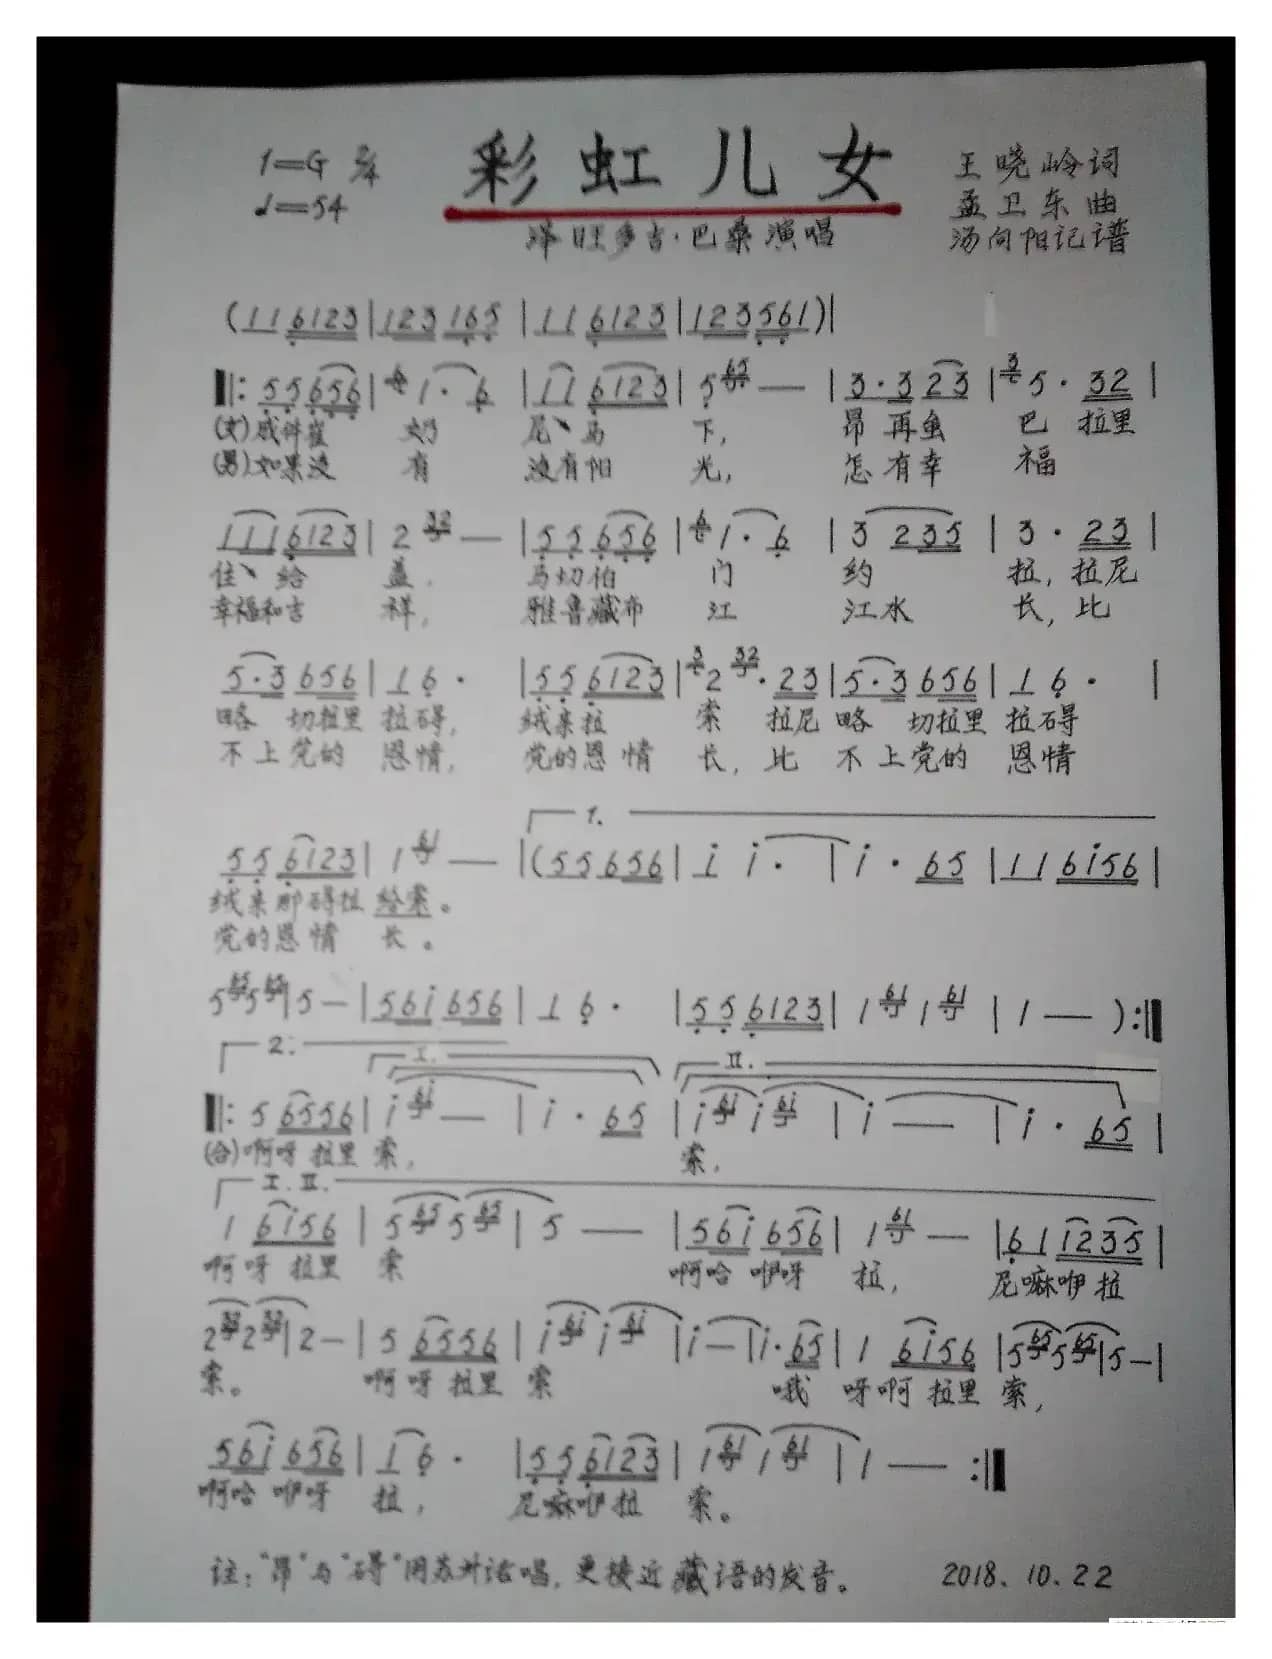 1=G 2/4
♩=54
彩虹儿女
王晓岭词
孟卫东曲
汤向阳记谱
泽旺多吉·巴桑演唱
(1 1 6 1 2 3 | 1 2 3 1 6 5 | 1 1 6 1 2 3 | 1 2 3 5 6 1) |
‖: 5 5 6 5 6 | 6 1 · 6 | 1 1 6 1 2 3 | 5 65 — | 3 · 3 2 3 | 3 5 · 3 2 |
(女) 奶 尼 马 下, 昂 再 巴 拉里
(男) 如果没 有 没有阳 光, 怎 有 幸 福
1 1 1 6 1 2 3 | 2 32 — | 5 5 6 5 6 | 6 1 · 6 | 3 2 3 5 | 3 · 2 3 |
住 给 盖, 马切伯 门 约 拉, 拉尼
幸福和吉 祥, 雅鲁藏布 江 江水 长, 比
5 · 3 6 5 6 | 1 6 · | 5 5 6 1 2 3 | 3 2 32 · 2 3 | 5 · 3 6 5 6 | 1 6 · |
略 切拉里 拉碍, 绒亲拉 索 拉尼 略 切拉里 拉碍
不上党的 恩情, 党的恩情 长, 比 不上党的 恩情
1.
5 5 6 1 2 3 | 1 61 — | (5 5 6 5 6 | i i · | i · 6 5 | 1 1 6 i 5 6 |
绒亲那碍拉 给索。
党的恩情 长。
5 65 5 65 | 5 — | 5 6 i 6 5 6 | 1 6 · | 5 5 6 1 2 3 | 1 61 1 61 | 1 — ) :‖
2. I. II.
‖: 5 6 5 5 6 | i 6i — | i · 6 5 | i 6i i 6i | i — | i · 6 5 |
(合) 啊呀拉里 索, 索,
I. II.
1 6 i 5 6 | 5 65 5 65 | 5 — | 5 6 i 6 5 6 | 1 61 — | 6 1 1 2 3 5 |
啊呀拉里 索 啊哈咿呀 拉, 尼嘛咿拉
2 32 2 32 | 2 — | 5 6 5 5 6 | i 6i i 6i | i — | i · 6 5 | 1 6 i 5 6 | 5 65 5 65 | 5 — |
索。 啊呀拉里 索 哦 呀啊拉里 索,
5 6 i 6 5 6 | 1 6 · | 5 5 6 1 2 3 | 1 61 1 61 | 1 — :‖
啊哈咿呀 拉, 尼嘛咿拉 索。
注:“昂”与“碍”用苏州话唱,更接近藏语的发音。 2018.10.22